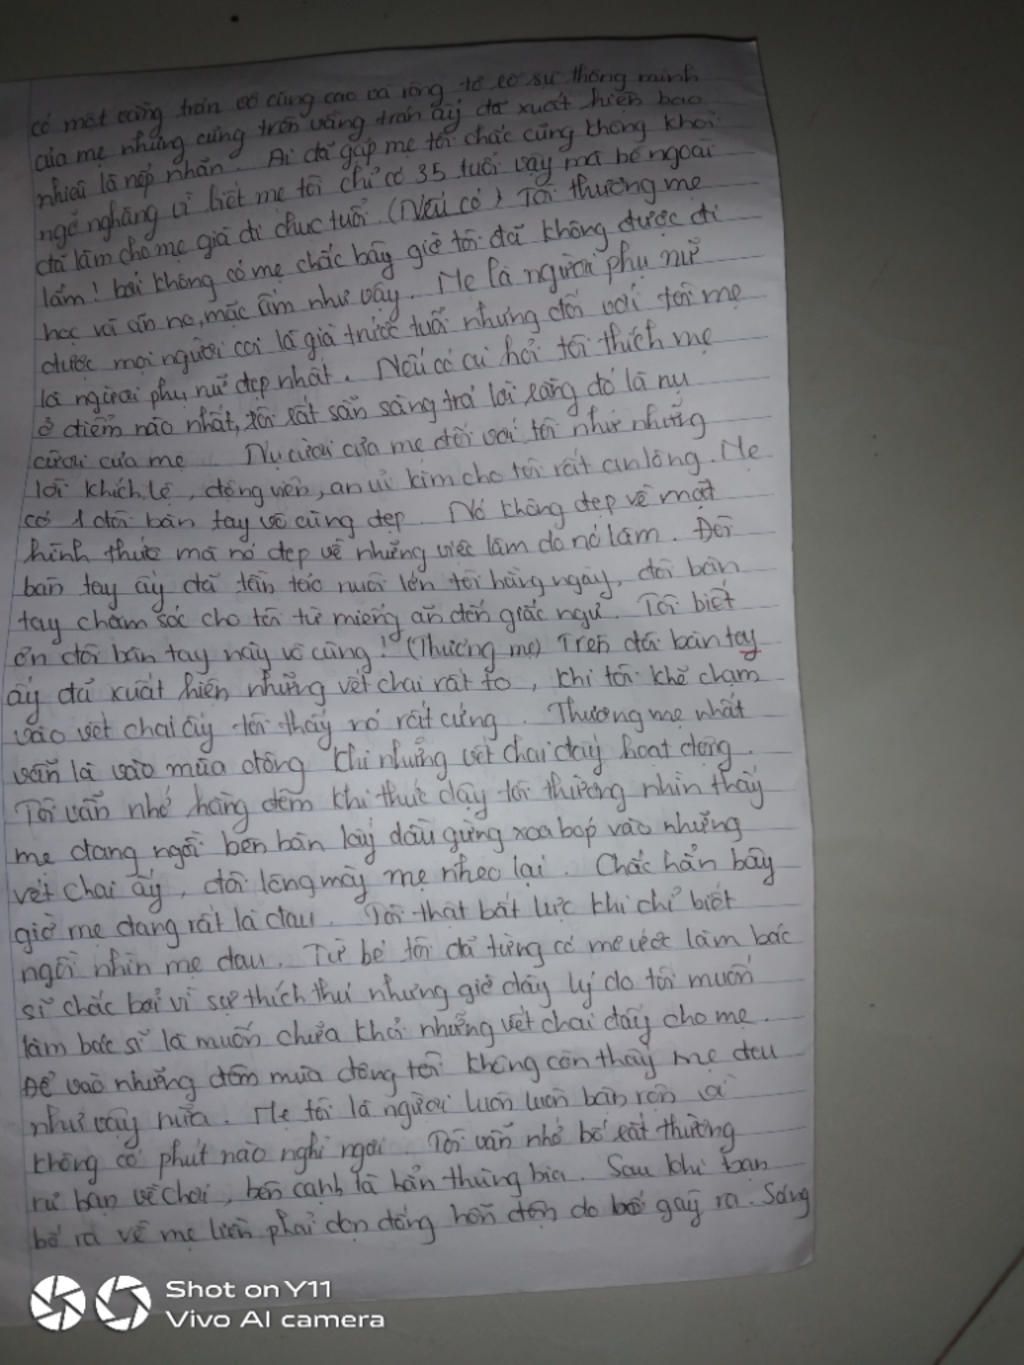 có một vầng trán vô cùng cao và rộng tỏ rõ sự thông minh
của mẹ nhưng cũng trên vầng trán ấy đã xuất hiện bao
nhiêu là nếp nhăn. Ai đã gặp mẹ tôi chắc cũng không khỏi
ngỡ nghàng vì biết mẹ tôi chỉ có 35 tuổi vậy mà bề ngoài
đã làm cho mẹ già đi chục tuổi (Nếu có) Tôi thương mẹ
lắm! bởi không có mẹ chắc bây giờ tôi đã không được đi
học và ăn no, mặc ấm như vậy. Mẹ là người phụ nữ
được mọi người coi là già trước tuổi nhưng đối với tôi mẹ
là người phụ nữ đẹp nhất. Nếu có ai hỏi tôi thích mẹ
ở điểm nào nhất, tôi rất sẵn sàng trả lời rằng đó là nụ
cười của mẹ. Nụ cười của mẹ đối với tôi như những
lời khích lệ, động viên, an ủi làm cho tôi rất an lòng. Mẹ
có 1 đôi bàn tay vô cùng đẹp. Nó không đẹp về mặt
hình thức mà nó đẹp về những việc làm do nó làm. Đôi
bàn tay ấy đã tần tảo nuôi lớn tôi hằng ngày, đôi bàn
tay chăm sóc cho tôi từ miếng ăn đến giấc ngủ. Tôi biết
ơn đôi bàn tay này vô cùng! (Thương mẹ) Trên đôi bàn tay
ấy đã xuất hiện những vết chai rất to, khi tôi khẽ chạm
vào vết chai ấy tôi thấy nó rất cứng. Thương mẹ nhất
vẫn là vào mùa đông khi những vết chai đấy hoạt động.
Tôi vẫn nhớ hằng đêm khi thức dậy tôi thường nhìn thấy
mẹ đang ngồi bên bàn lấy dầu gừng xoa bóp vào những
vết chai ấy, đôi lông mày mẹ nheo lại. Chắc hẳn bây
giờ mẹ đang rất là đau. Tôi thật bất lực khi chỉ biết
ngồi nhìn mẹ đau. Từ bé tôi đã từng có mơ ước làm bác
sĩ chắc bởi vì sự thích thú nhưng giờ đây lý do tôi muốn
làm bác sĩ là muốn chữa khỏi những vết chai đấy cho mẹ.
Để vào những đêm mùa đông tôi không còn thấy mẹ đau
như vậy nữa. Mẹ tôi là người luôn luôn bận rộn và
không có phút nào nghỉ ngơi. Tôi vẫn nhớ bố rất thường
rủ bạn về chơi, bên cạnh là hẳn thùng bia. Sau khi bạn
bố ra về mẹ liền phải dọn đống hỗn độn do bố gây ra. Sáng
Shot on Y11
Vivo AI camera